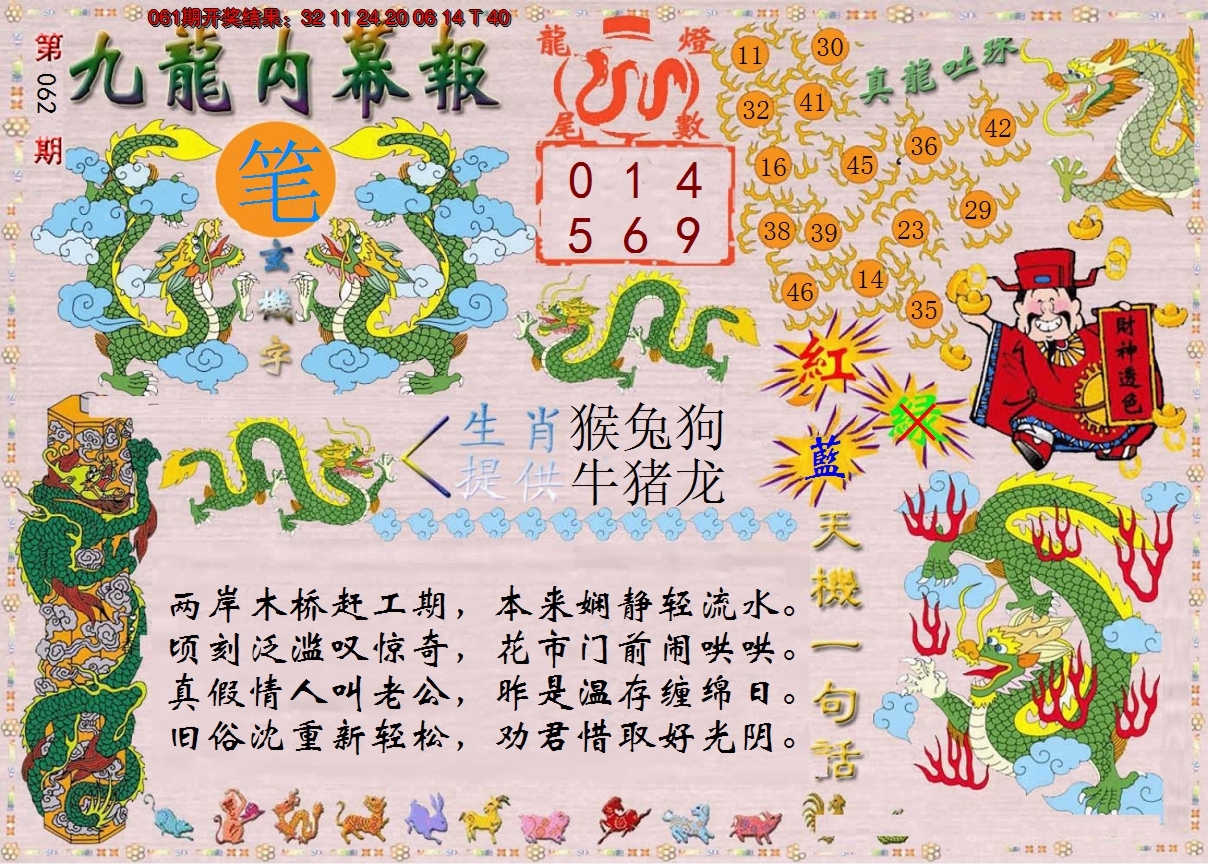 061期开奖结果：32 11 24 20 06 14 T 40
第062期
九龍内幕報
笔
玄機字
龍燈尾數
0 1 4
5 6 9
真龍吐珠
11
30
32
41
16
45
36
42
38
39
23
29
46
14
35
財神透色
紅
绿
藍
生肖提供
猴兔狗
牛猪龙
天機一句話
两岸木桥赶工期，本来娴静轻流水。
顷刻泛滥叹惊奇，花市门前闹哄哄。
真假情人叫老公，昨是温存缠绵日。
旧俗沈重新轻松，劝君惜取好光阴。